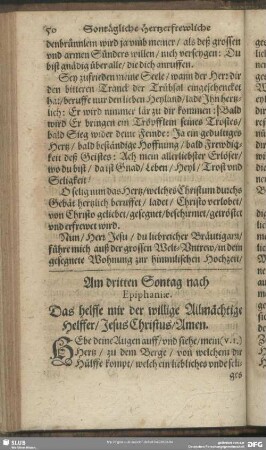 50 Sontägliche Hertzerfrewliche
denbrünnlein wird ja nünb meiner/ als deß grossen
vnd armen Sünders willen/ nich verseygen: Du
bist gnädig überalle/ die dich anruffen.
Sey zufrieden meine Seele/ wann der Herr dir
den bitteren Tranck der Trübsal eingeschencket
hat/ beruffe nur den lieben Heyland/ lade Jhn hertz-
lich: Er wird nimmer lär zu dir kommen: Bald
wird Er bringen ein Tröpfflein seines Trostes/
bald Sieg wider deine Feinde: Ja ein gedultiges
Hertz/ bald beständige Hoffnung/ bald Frewdig-
keit deß Geistes: Ach mein allerliebster Erlöser/
wo du bist/ da ist Gnad/ Leben/ Heyl/ Trost vnd
Seligkeit/
O selig nun das Hertz/ welches Christum durchs
Gebät hertzlich beruffet/ ladet/ Christo verlobet/
von Christo geliebet/ gesegnet/ beschirmet/ getröstet
vnd erfrewet wird.
Nun/ Herr Jesu/ du liebreicher Bräutigam/
führe mich auß der grossen Welt-Vntrew/ in dein
gesegnete Wohnung zur himmlischen Hochzeit/
Am dritten Sontag nach
Epiphaniæ.
Das helffe mir der willige Allmächtige
Helffer/ Jesus Christus/ Amen.
HEbe deine Augen auff/ vnd siehe/ mein (v. 1.)
Hertz/ zu dem Berge/ von welchem dir
Hülffe kompt/ welch ein liebliches vnd seli-
ges
SLUB